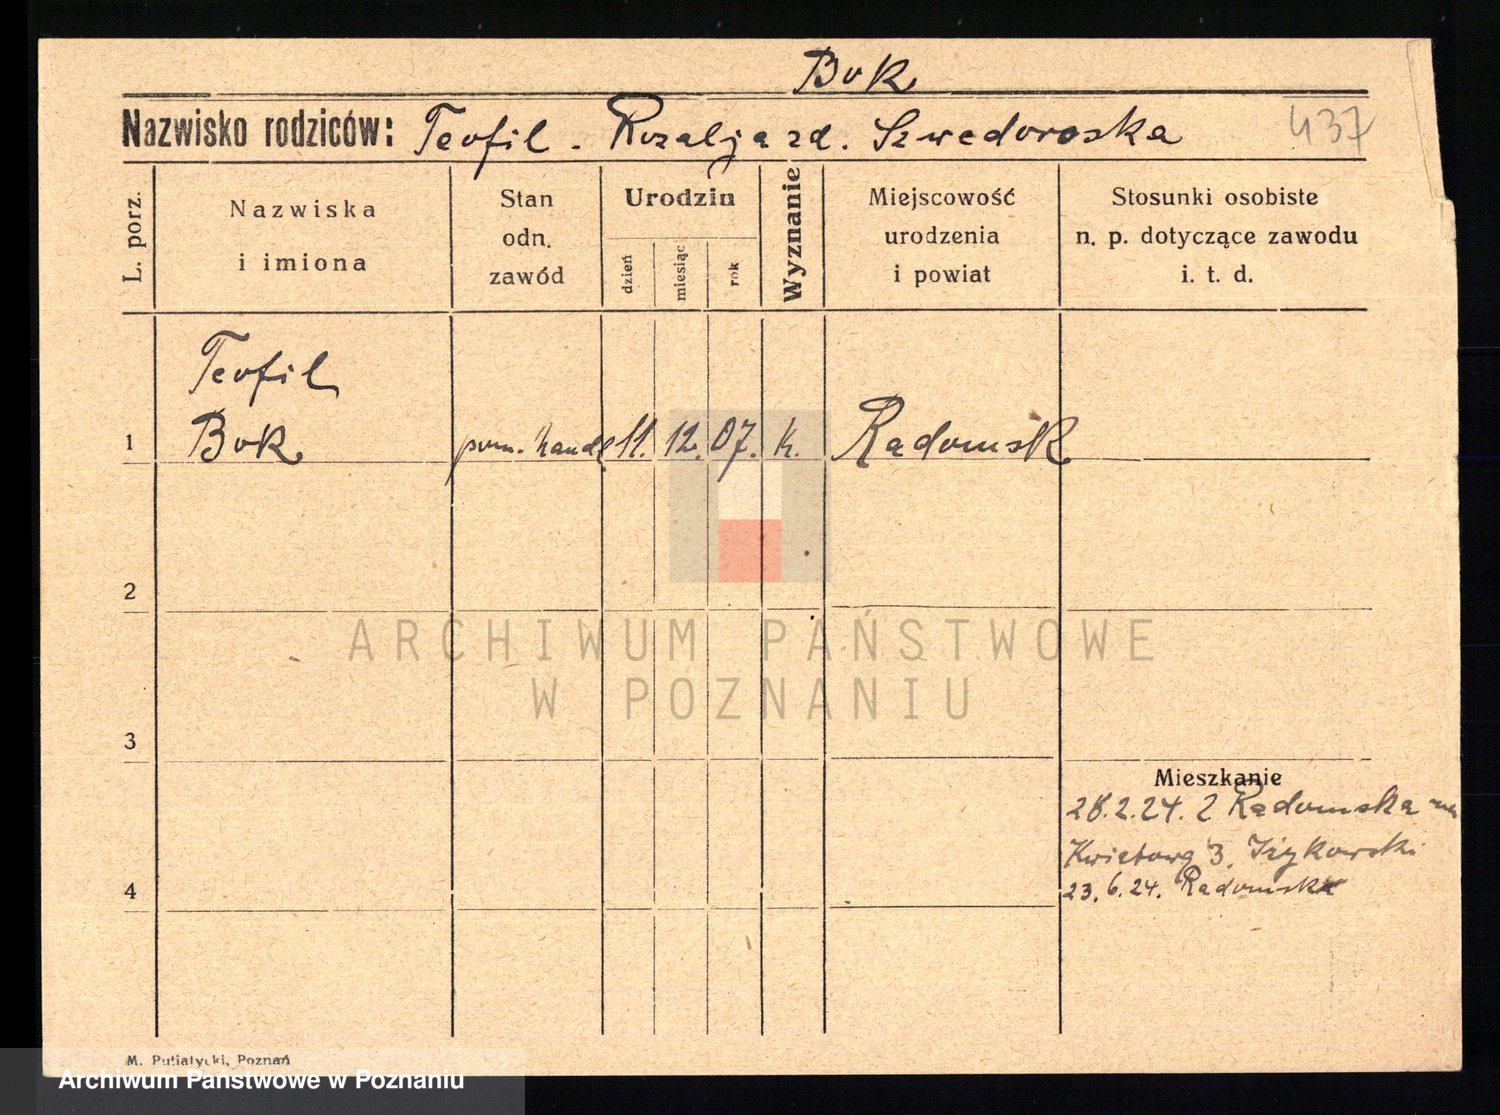 Bok
Nazwisko rodziców: Teofil - Rozalja zd. 437
L. porz.
Nazwiska
i imiona
Stan
odn.
zawód
Urodzin
dzień
miesiąc
rok
Wyznanie
Miejscowość
urodzenia
i powiat
Stosunki osobiste
n. p. dotyczące zawodu
i. t. d.
Teofil
1 Bok pom. handl 11. 12. 07. k. Radomsk
2
ARCHIWUM PAŃSTWOWE
W POZNANIU
3
Mieszkanie
28.2.24. z Radomska na
3,
4 23.6.24. Radomsk
M. Putiatycki, Poznań
Archiwum Państwowe w Poznaniu